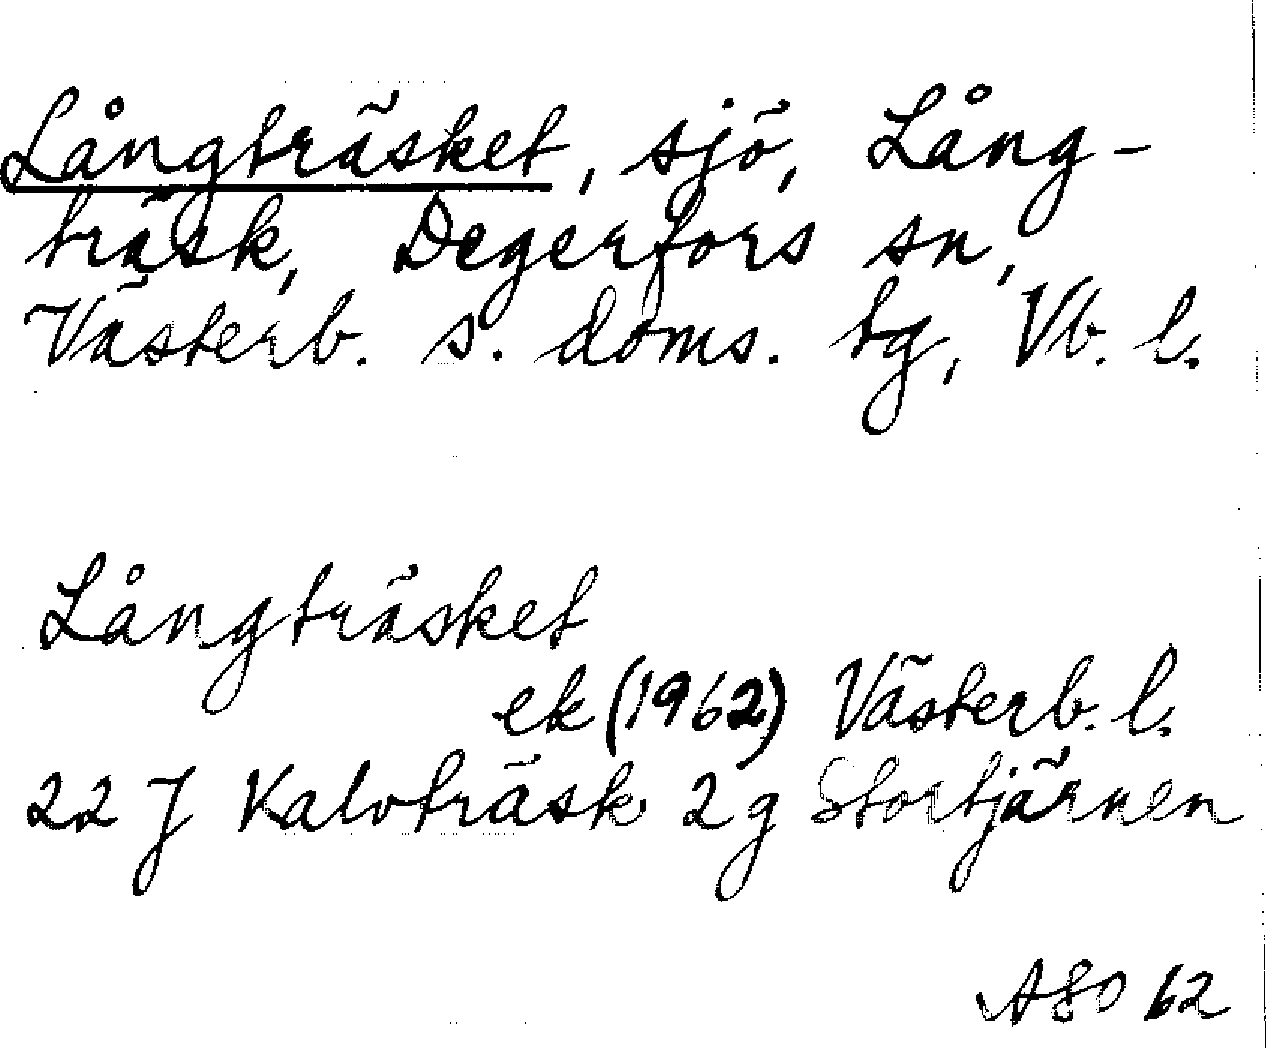 Långträsket, sjö, Lång-
träsk, Degerfors sn,
Västerb. s. doms. tg, Vb. l.
Långträsket
ek (1962) Västerb. l.
22 J Kalvträsk 2 g Stortjärnen
ASO 62